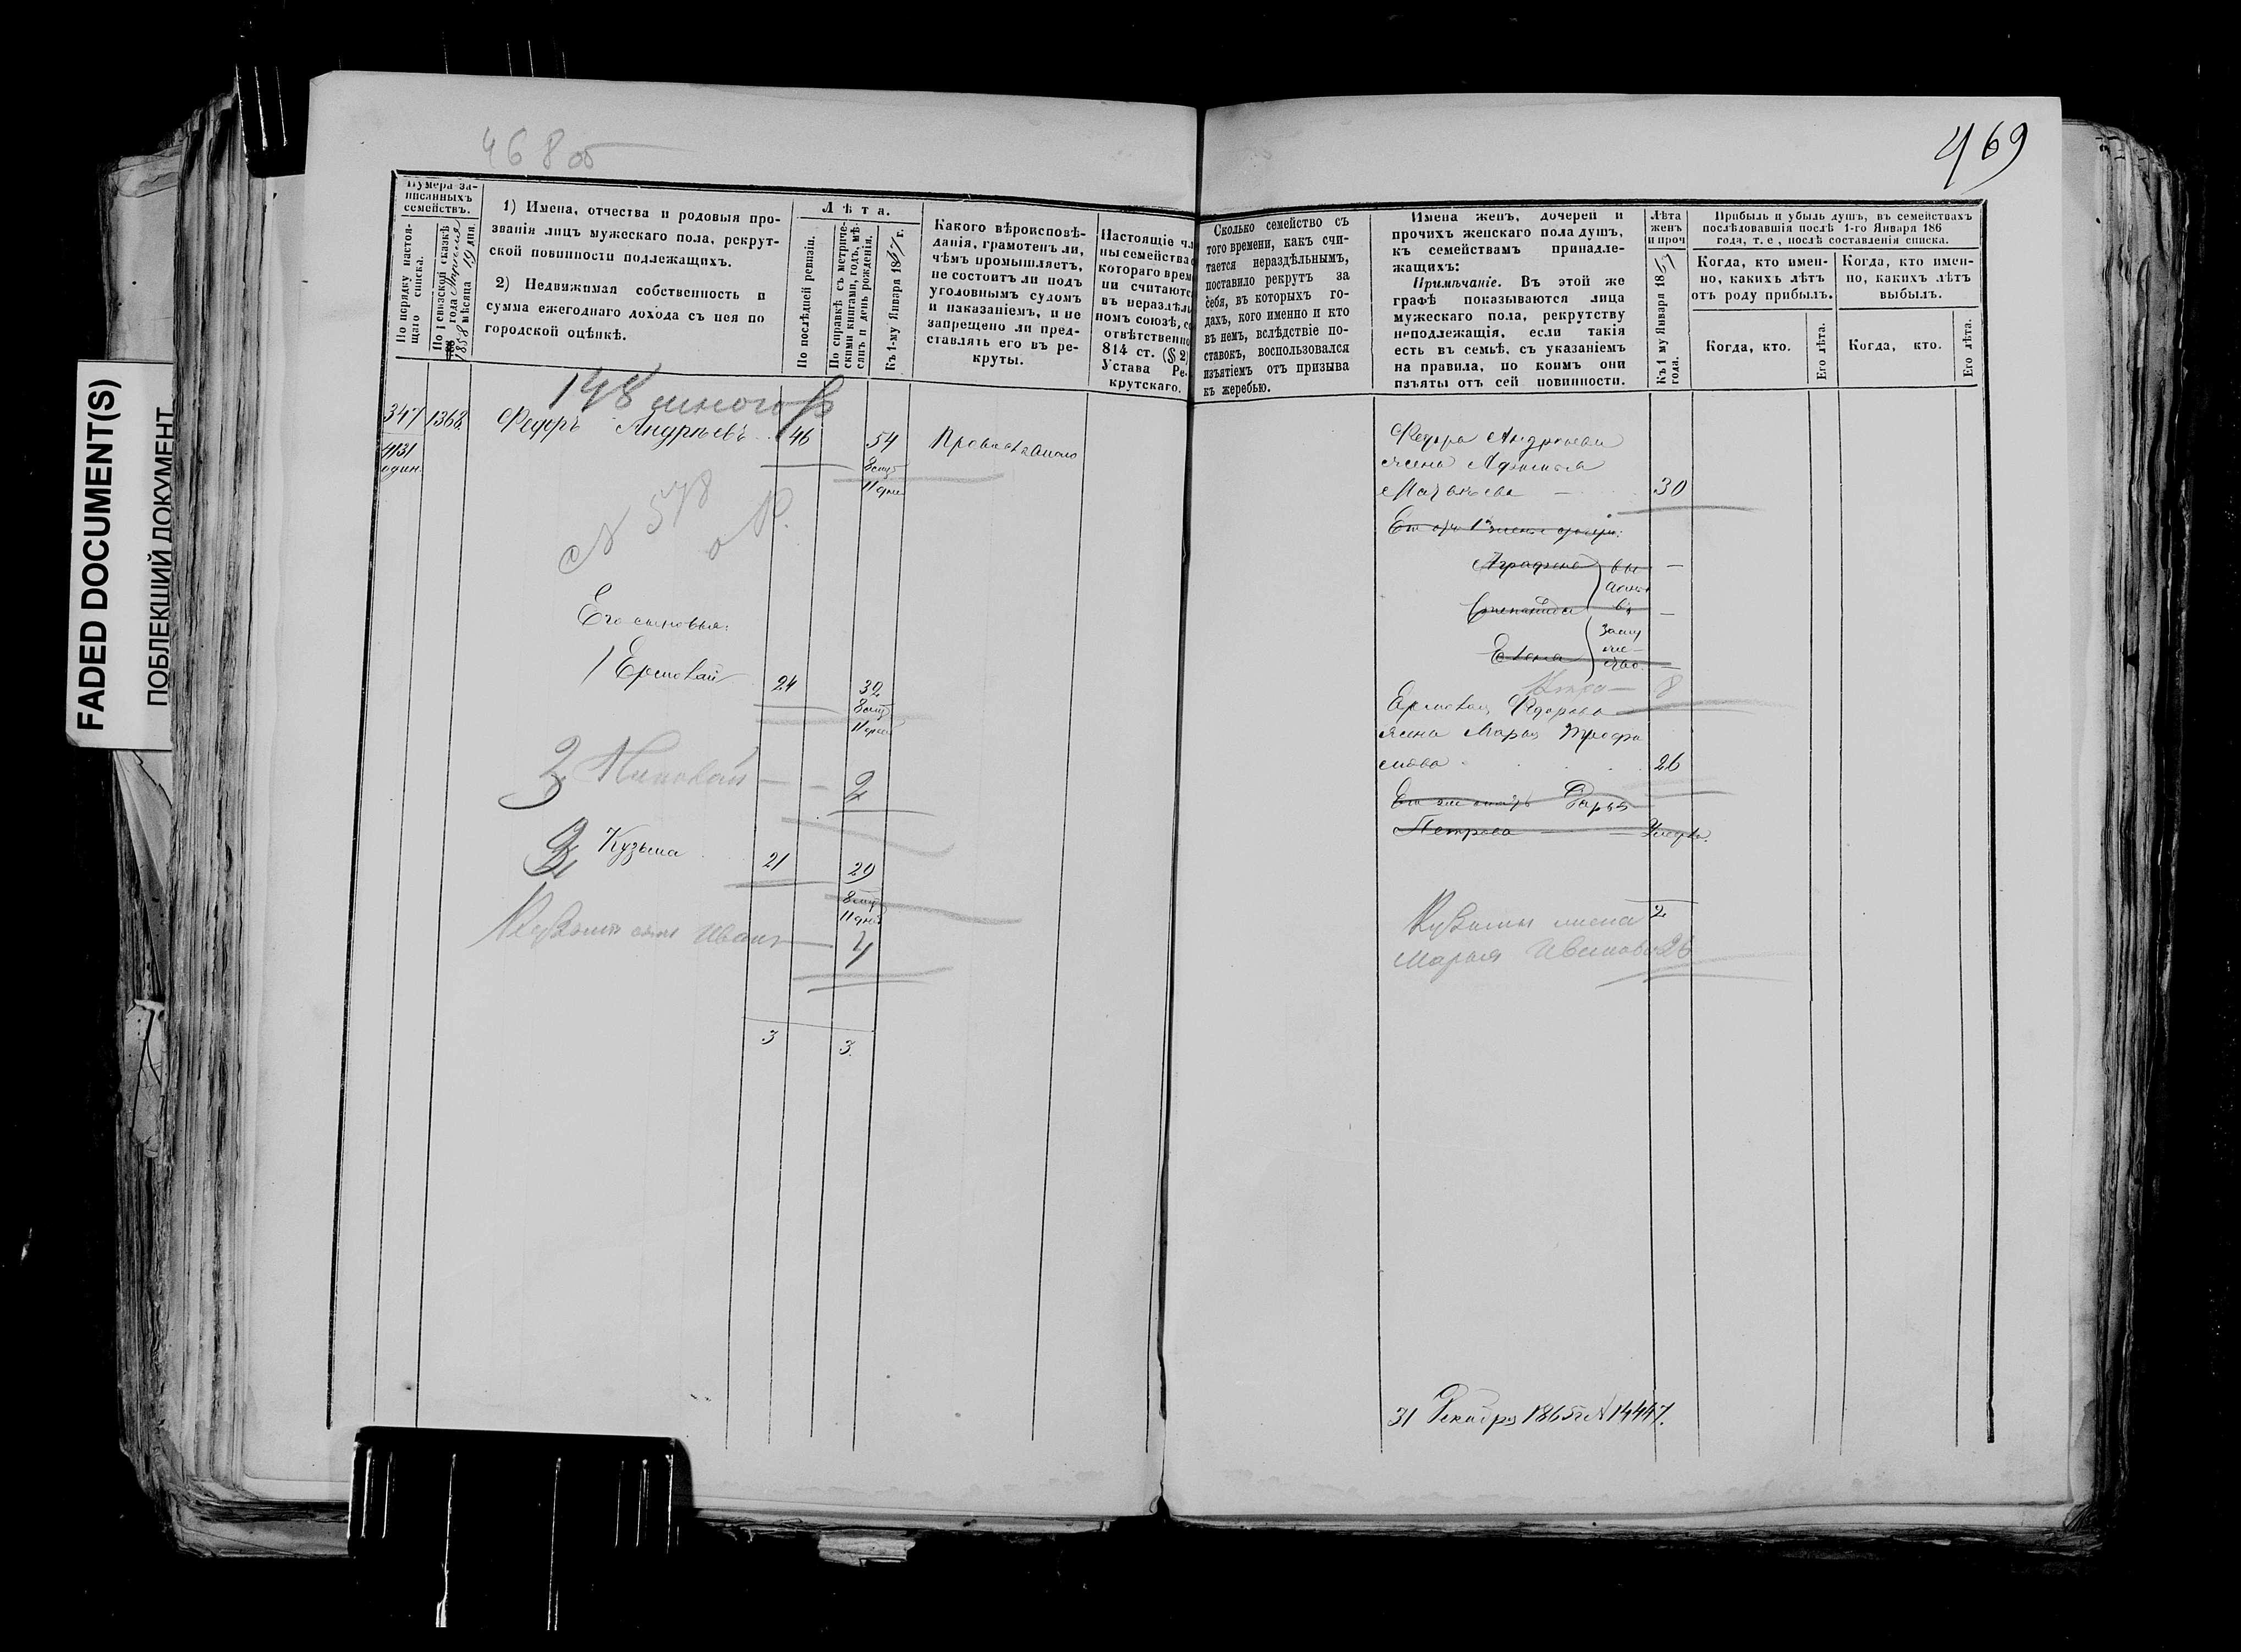 FADED DOCUMENT(S)
ПОБЛЕКШИЙ ДОКУМЕНТ
468 об
Нумера за-
писанныхъ
семействъ.
По порядку настоя-
щаго списка.
По ревизской сказкѣ
1858 года
мѣсяца 19 дня.
1) Имена, отчества и родовыя про-
званія лицъ мужескаго пола, рекрут-
ской повинности подлежащихъ.
2) Недвижимая собственность и
сумма ежегоднаго дохода съ нея по
городской оцѣнкѣ.
Лѣта.
По послѣдней ревизіи.
По справкѣ съ метриче-
скими книгами, годъ, мѣ-
сяцъ и день рожденія.
Къ 1-му Января 1867 г.
Какого вѣроисповѣ-
данія, грамотенъ ли,
чѣмъ промышляетъ,
не состоитъ ли подъ
уголовнымъ судомъ
и наказаніемъ, и не
запрещено ли пред-
ставлять его въ ре-
круты.
Настоящіе чл
ны семейства
котораго врем
ни считаютс
въ нераздѣл
номъ союзѣ, со
отвѣтственно
814 ст. (§ 2)
Устава Ре-
крутскаго.
347 1368
148
Федоръ Андреевъ 46 54 Православнаго
один.
11 дне
N 578
Его сыновья:
1 Ермолай 24 32
11 дне
2
3 Кузьма 21 29
11 дней
Кузьмы сынъ Иванъ 4
3 3.
469
Сколько семейство съ
того времени, какъ счи-
тается нераздѣльнымъ,
поставило рекрутъ за
себя, въ которыхъ го-
дахъ, кого именно и кто
въ немъ, вслѣдствіе по-
ставокъ, воспользовался
изъятіемъ отъ призыва
къ жеребью.
Имена женъ, дочерей и
прочихъ женскаго пола душъ,
къ семействамъ принадле-
жащихъ:
Примѣчаніе. Въ этой же
графѣ показываются лица
мужескаго пола, рекрутству
неподлежащія, если такія
есть въ семьѣ, съ указаніемъ
на правила, по коимъ они
изъяты отъ сей повинности.
Лѣта
женъ
и проч
Къ 1 му Января 1867
года.
Прибыль и убыль душъ, въ семействахъ
послѣдовавшія послѣ 1-го Января 186
года, т. е, послѣ составленія списка.
Когда, кто имен-
но, какихъ лѣтъ
отъ роду прибылъ.
Когда, кто имен-
но, какихъ лѣтъ
выбылъ.
Когда, кто.
Его лѣта.
Когда, кто.
Его лѣта.
Федора Андреева
жена
30
Аграфена
Степанида
Елена
8
Ермолая Федорова
жена Марья Трофи
мова 26
Его же мать Дарья
Петрова
2
Кузьмы жена
Марья Иванова 26
31 Декабря 1865 г N 14447.